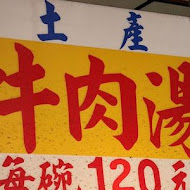 土產
牛肉湯
每碗120元